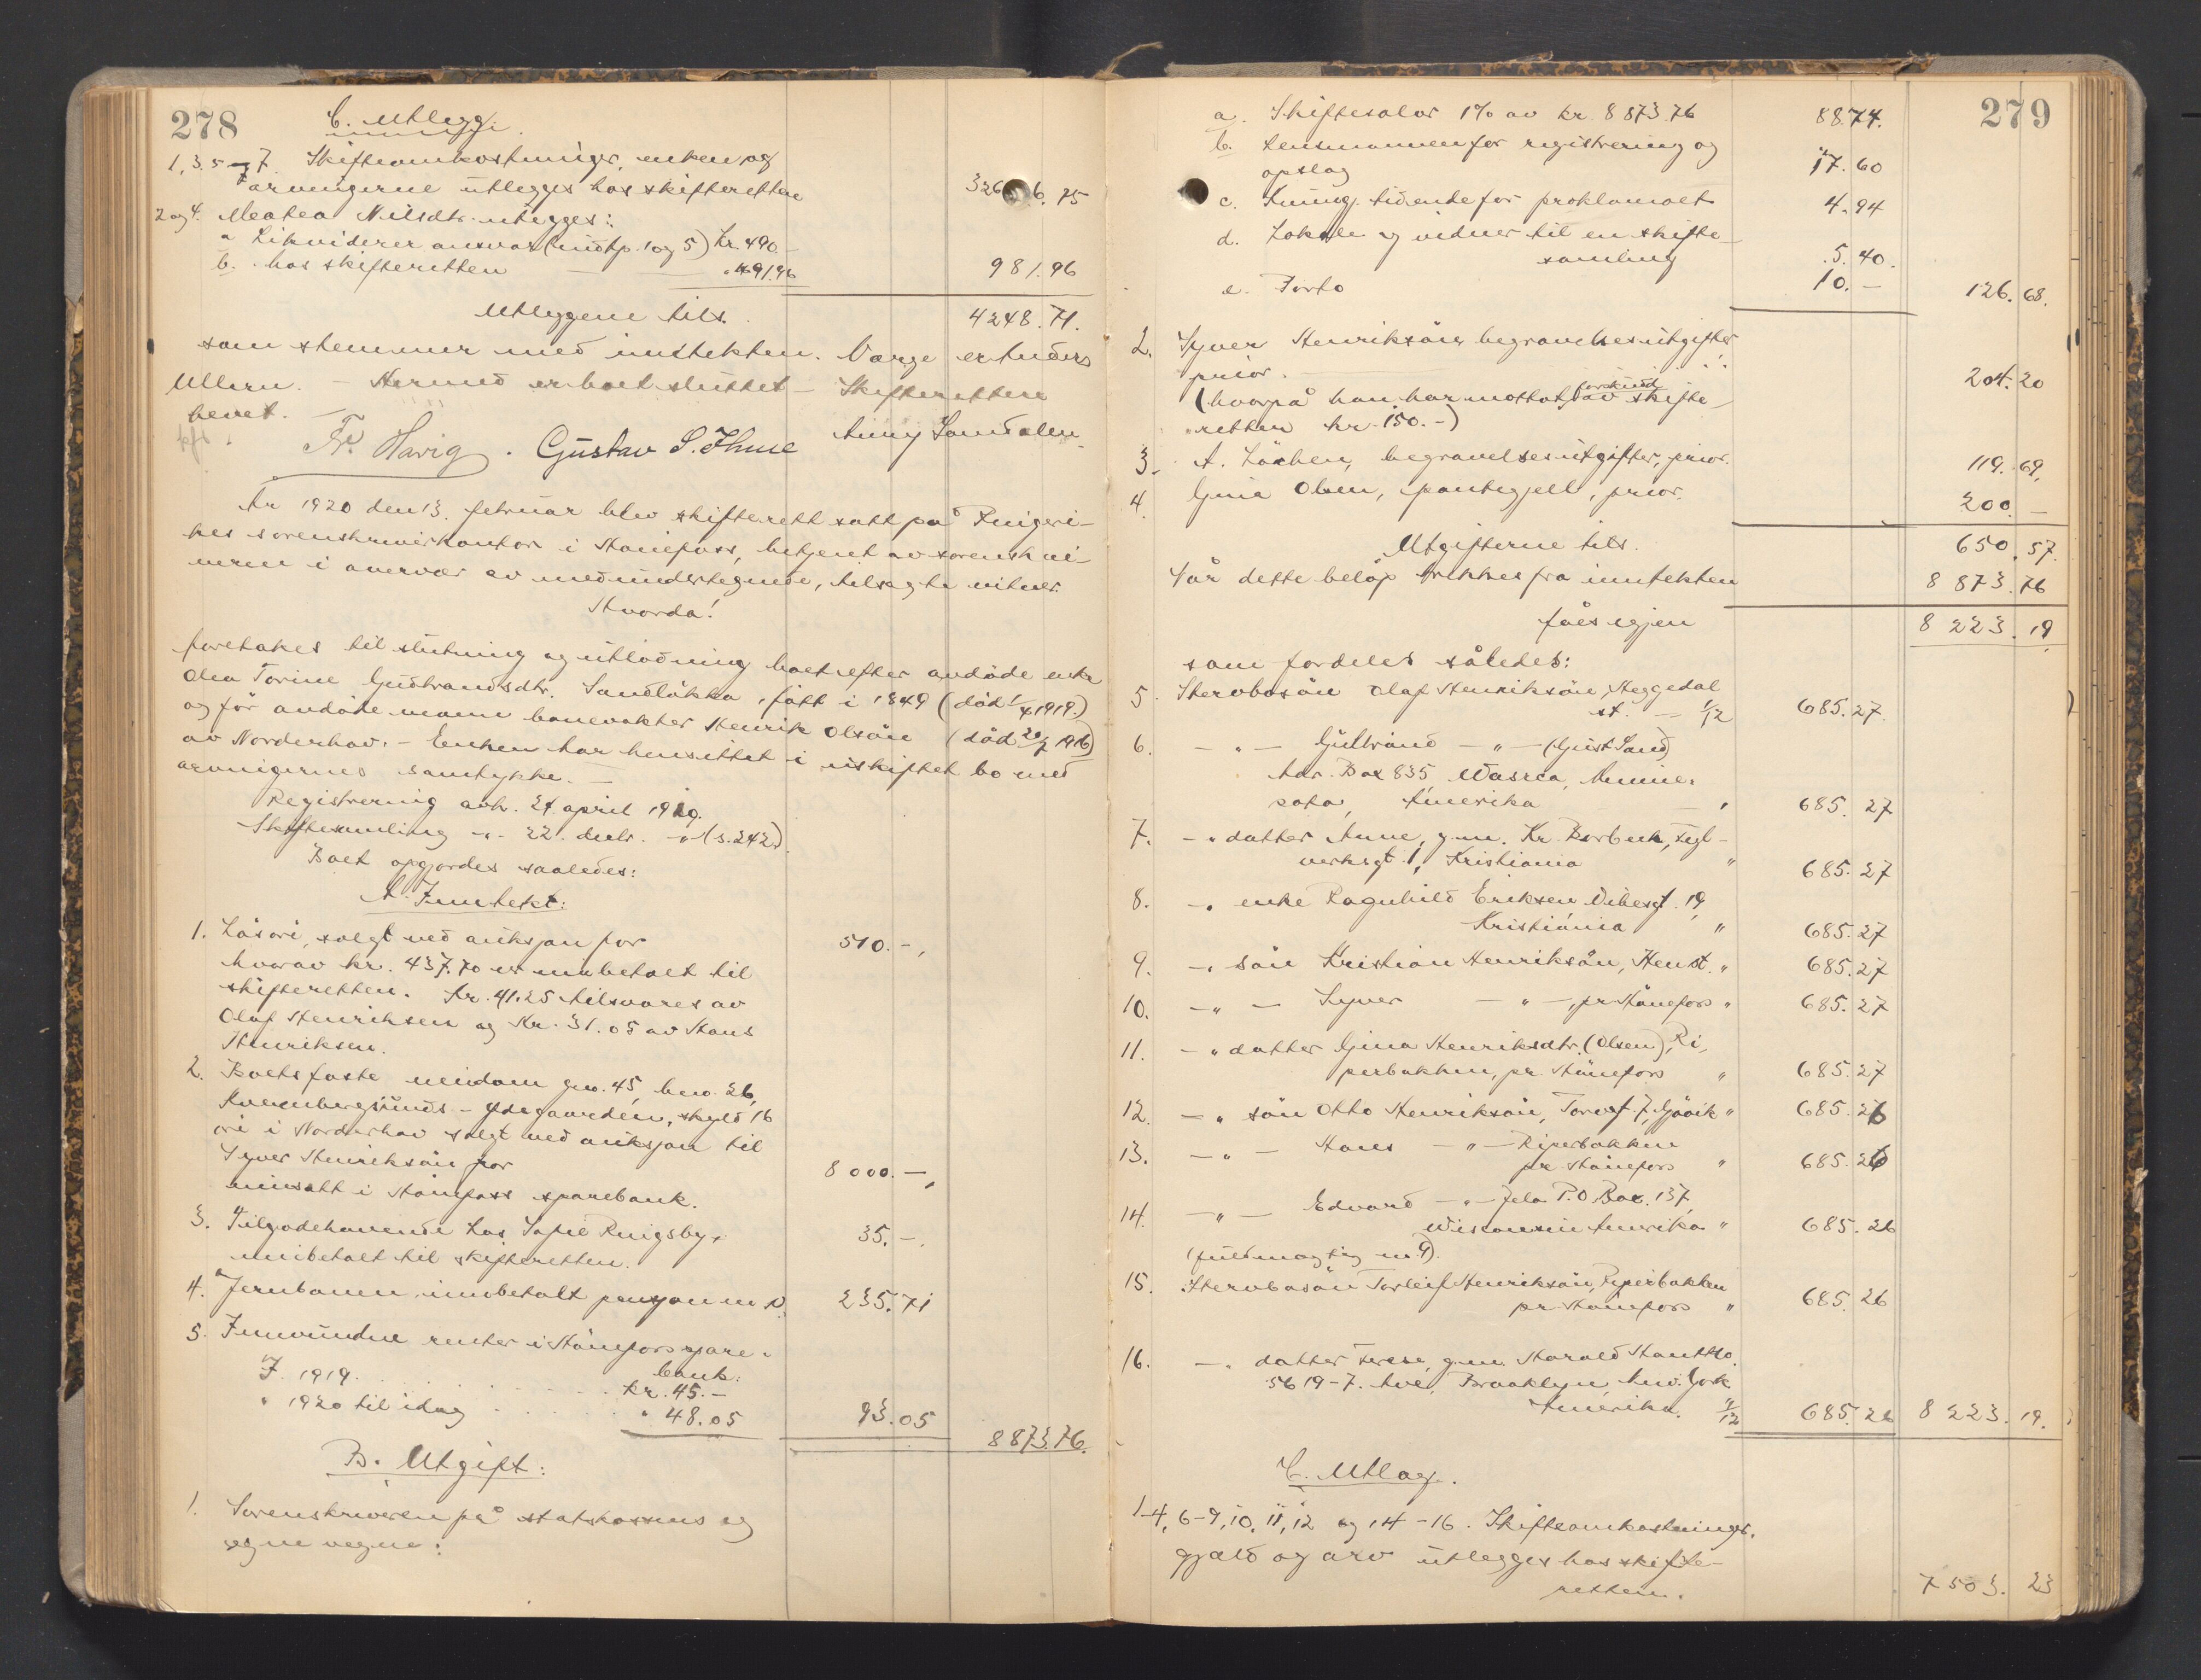 278
C. Utlegg.
1, 3, 5 og 7. Skifteomkostninger, enken og
arvingerne utlegges hos skifteretten 3266.75
2 og 4. Meatea Nilsdtr. utlegges:
a Likviderer ansvar (indtp. 1 og 5) kr. 490.-
b. hos skifteretten — " 491.96 981.96
Utleggene tils. 4248.71.
som stemmer med inntekten. Verge er Anders
Ullern. — Hermed er boet sluttet — Skifteretten
hevet. —
Fr. Havig. Gustav S. Ihme Anny Sandalen
År 1920 den 13. februar blev skifterett satt på Ringeri-
kes sorenskriverkontor i Hönefoss, betjent av sorenskri-
veren i overvær av medundertegnede, tilsagte vitner.
Hvorda!
foretokes til slutning og utlodning boet efter avdöde enke
Olea Torine Gudbrandsdtr. Sandløkka, födt i 1849 (död 1/4 1919.)
og för avdöde mann banevokter Henrik Olsön (död 20/7 1916)
av Norderhov. – Enken har hensittet i uskiftet bo med
arvingernes samtykke. —
Registrering avh. 24 april 1919.
Skiftesamling -"- 22. decbr. -"- (s. 242).
Boet opgjordes saaledes:
A. Inntekt:
1. Lösöre, solgt ved auksjon for 510.-,
hvorav kr. 437.70 er innbetalt til
skifteretten. Kr. 41.25 tilsvares av
Olaf Henriksen og Kr. 31.05 av Hans
Henriksen.
2. Boets faste eiendom gno. 45, bno. 26,
Kverbergsunds - Ødegaarden, skyld 16
öre i Norderhov solgt ved auksjon til
Syver Henriksön for 8 000.—,
innsatt i Hönefoss sparebank.
3. Tilgodehavende hos Sofie Ringsby, 35.-.
innbetalt til skifteretten.
4. Jernbanen, innbetalt pensjon m. v. 235.71
5. Innvundne renter i Hönefoss spare-
bank:
I 1919. kr. 45.-
" 1920 til idag " 48.05 93.05
8 873.76.
B. Utgift:
1. Sorenskriveren på statskassens og
egne vegne:
279
a. Skiftesalær 1% av kr. 8 873.76 88.74.
b. Lensmannen for registrering og
opslag 17.60
c. Kunng. tidende for proklamaet 4.94
d. Lokale og vidner til en skifte-
samling 5.40.
e. Porto 10.- 126.68.
2. Syver Henriksöns begravelsesutgifter
prior. 204.20
(hvorpå han har mottatt forskud av skifte-
retten kr. 150.-)
3. A. Löchen, begravelsesutgifter, prior. 119.69.
4. Gina Olsen, pantegjeld, prior. 200.—
Utgifterne tils. 650.57.
Når dette belöp trekkes fra inntekten 8 873.76
fåes igjen 8 223.19
som fordeles således:
5. Stervbosön Olaf Henriksön, Heggedal
st. — 1/12 685.27.
6. -"- Gulbrand -"- (Gust Sand)
Adr. Box 835, Waseca, Minne-
sota, Amerika " 685.27
7. -" datter Anne, g.m. Kr. Borbeck, Tegl-
verksgt. 1, Kristiania " 685.27
8. -" enke Ragnhild Eriksen Vibesgt. 19,
Kristiania " 685.27
9. -" sön Kristian Henriksön, Hen st. " 685.27
10. -"- Syver -"-, pr. Hönefoss " 685.27
11. -" datter Gina Henriksdtr. (Olsen), Ri-
perbakken, pr. Hönefoss " 685.27
12. -" sön Otto Henriksön, Torvgt. 7, Gjövik " 685.26
13. -"- Hans -"- Riperbakken
pr. Hönefoss " 685.26
14. -"- Edvard -"- Jela P.O. Box. 137,
Wisconsin Amerika " 685.26
(fuldmægtig nr. 9).
15. Stervbosön Torleif Henriksön, Riperbakken
pr. Hönefoss " 685.26
16. -" datter Terese, g.m. Harald
5619-7. Ave, Brooklyn, New York
Amerika. 1/12 685.26 8 223.19.
C. Utlæg.
1-4, 6-9, 10, 11, 12 og 14-16. Skifteomkostninger,
gjæld og arv utlegges hos skifte-
retten. 7 503.23